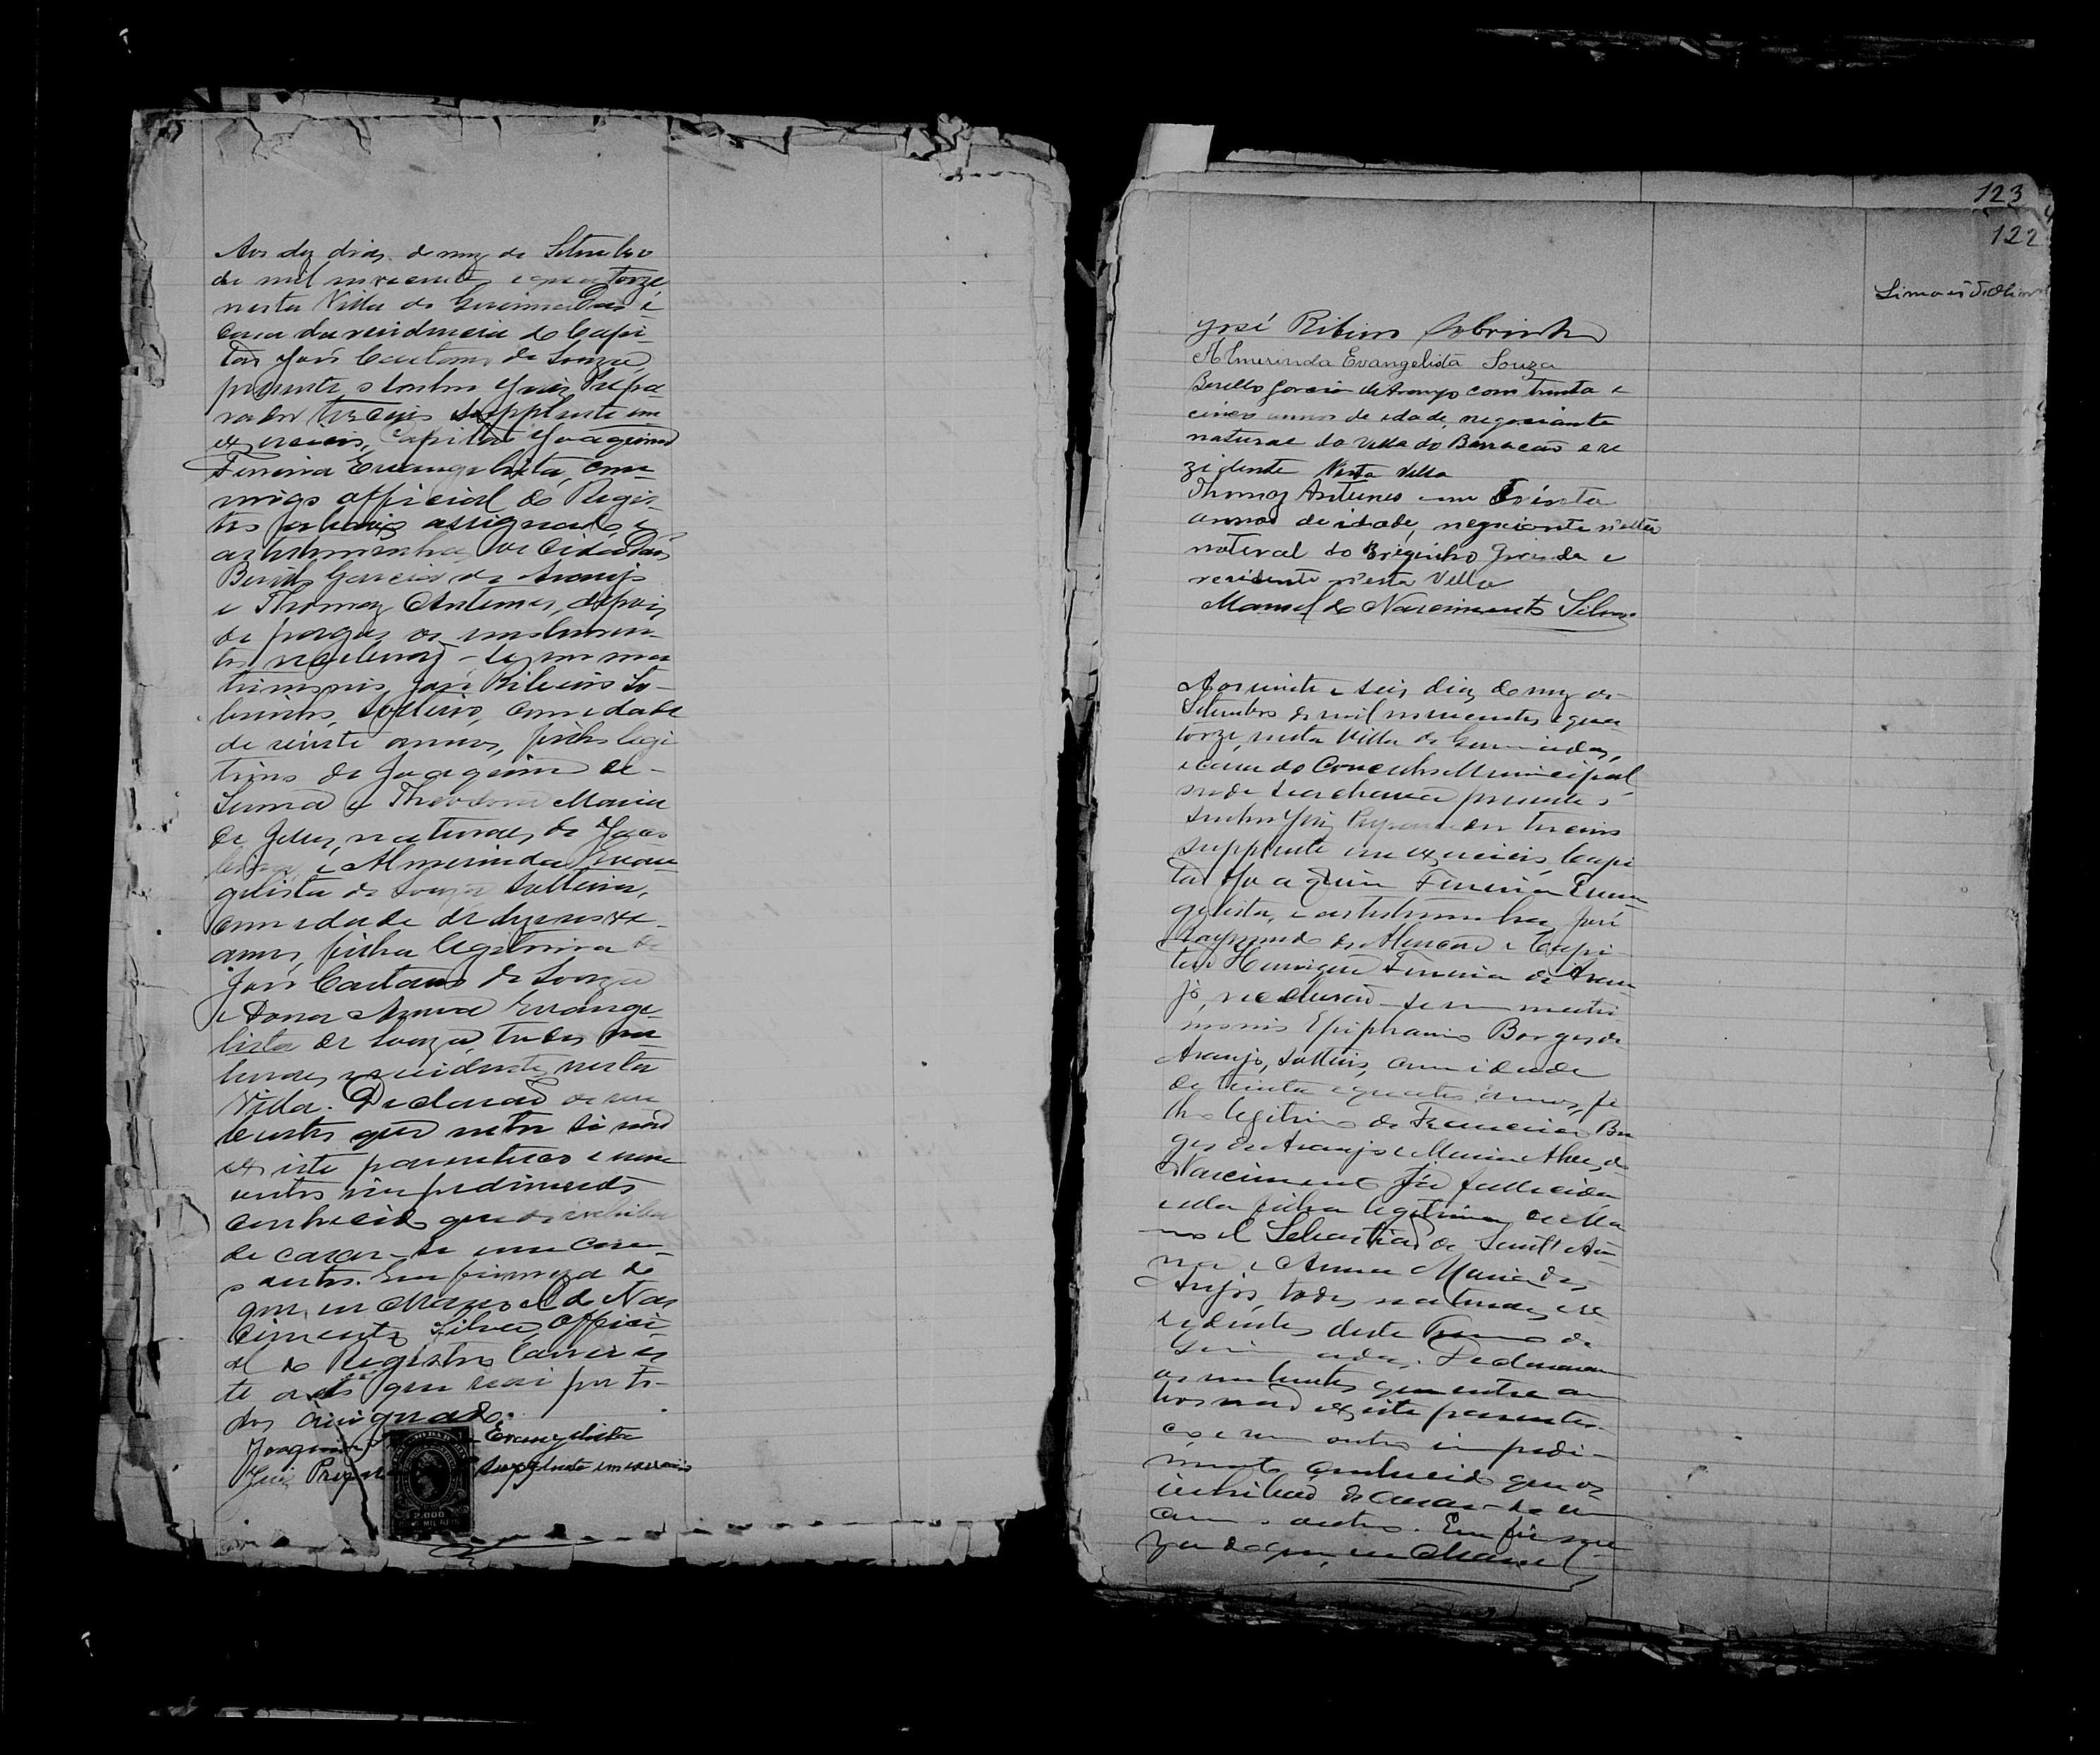 Aos dez dias do mez de Setembro
de mil novecentos e quatorze
nesta Villa de Geremoabo e
casa da residencia do Capi-
tão José Caetano de Souza,
presente o Senhor Juiz Prepa-
rador terceiro supplente em
exercicio, Capitão Joaquim
Ferreira Evangelista, com-
migo official do Regis-
tro abaixo assignado, e
as testemunhas os Cidadãos
Berillo Garcia de Araujo
e Thomaz Antunes, depois
de
receberão-se em ma-
trimonio José Ribeiro So-
brinho, solteiro, com idade
de vinte annos, filho legi
timo de Joaquim de
e Theodora Maria
de Jesus, naturaes de
e Almerinda Evan-
gelista de Souza, solteira,
com idade de dezenove
annos, filha legitima de
José Caetano de Souza
e Dona Anna Evange-
lista de Souza, todos na
turaes e residentes nesta
Villa. Declararão os nu
bentes que entre si não
existe parentesco e nem
outro impedimento
conhecido que os prohiba
de casar-se um com
o outro. Em firmeza do
que, eu Manoel do Nas
cimento Silva, Offici-
al do Registro lavrei es
te acto que vai por to-
dos assignado.
Joaquim Evangelista
Juiz Prepa supplente em exercicio
2.000
MIL REIS
123
122
José Ribeiro Sobrinho
Almerinda Evangelista Souza
Berillo Garcia de Araujo com trinta e
cinco annos de idade, negociante
natural da Villa do Barracão e re
zidente Nesta Villa
Thomaz Antunes com Trinta
annos de idade, negociante n'esta
natural do Brejinho e
residente n'esta Villa
Manoel do Nascimento Silva
Aos vinte e seis dias do mez de
Setembro de mil novecentos e qua
torze, nesta Villa de
e casa do Conselho Municipal,
onde se achava presente o
Senhor Juiz Preparador terceiro
supplente em exercicio, Capi
tão Joaquim Ferreira Evan
gelista, e as testemunhas José
Raymundo de e Capi
tão Henrique Ferreira de Arau
jo, receberão-se em matri
monio Epiphanio Borges de
Araujo, solteiro, com idade
de trinta e quatro annos, fi
lho legitimo de Francisco Bor
ges de Araujo e Maria Alves do
Nascimento já fallecida
e ella filha legitima de Ma
noel Sebastião de Sant'An
na e Anna Maria dos
Anjos, todos naturaes e re
sidentes deste Termo de
Declararam
os nubentes que entre am
bos não existe parentes
co e nem outro impedi-
mento conhecido que os
inhiba de casar-se um
com o outro. Em firme
za do que, eu Manoel